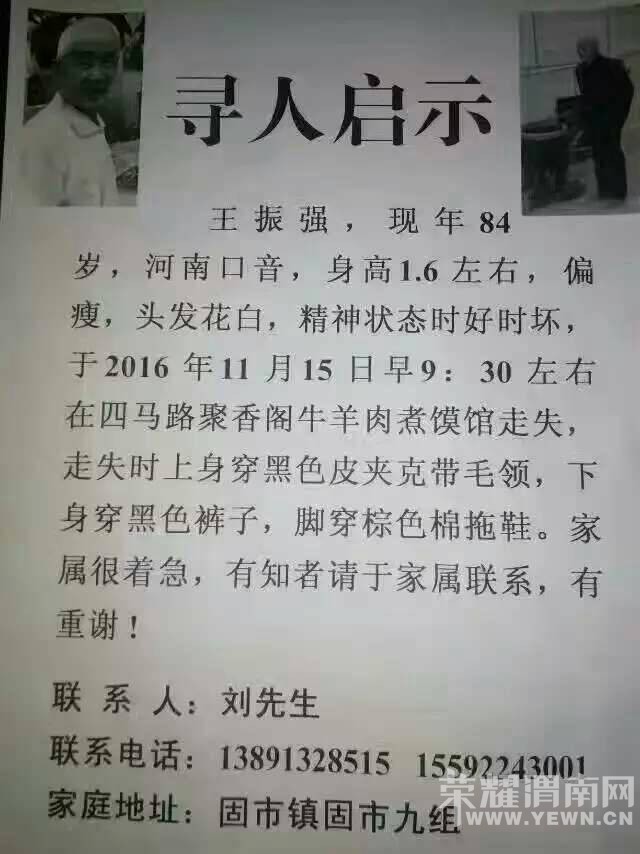 寻人启示
王振强，现年84
岁，河南口音，身高1.6左右，偏
瘦，头发花白，精神状态时好时坏，
于2016年11月15日早9：30左右
在四马路聚香阁牛羊肉煮馍馆走失，
走失时上身穿黑色皮夹克带毛领，下
身穿黑色裤子，脚穿棕色棉拖鞋。家
属很着急，有知者请于家属联系，有
重谢！
联系人：刘先生
联系电话：13891328515 15592243001
家庭地址：固市镇固市九组
荣耀渭南网
WWW.YEWN.CN